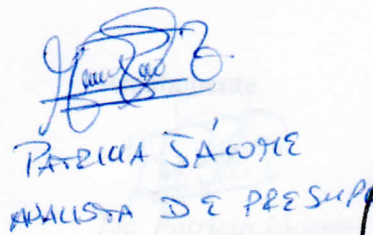 PATRICIA JÁCOME
ANALISTA DE PRESUP